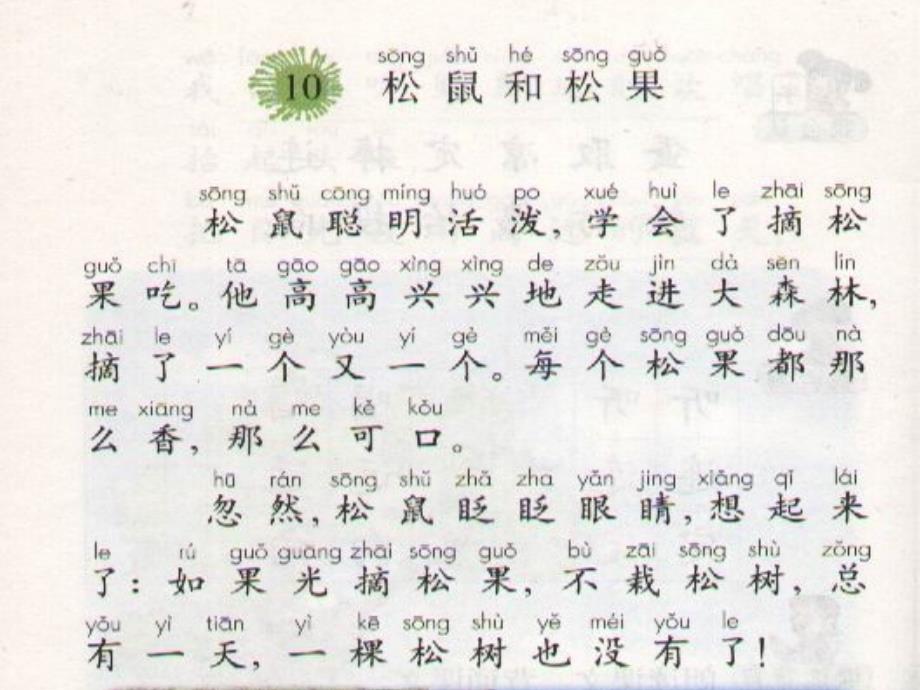 sōng shǔ hé sōng guǒ
10 松鼠和松果
sōng shǔ cōng míng huó po xué huì le zhāi sōng
松鼠聪明活泼,学会了摘松
guǒ chī tā gāo gāo xìng xìng de zǒu jìn dà sēn lín
果吃。他高高兴兴地走进大森林,
zhāi le yí gè yòu yí gè měi gè sōng guǒ dōu nà
摘了一个又一个。每个松果都那
me xiāng nà me kě kǒu
么香,那么可口。
hū rán sōng shǔ zhǎ zha yǎn jing xiǎng qǐ lái
忽然,松鼠眨眨眼睛,想起来
le rú guǒ guāng zhāi sōng guǒ bù zāi sōng shù zǒng
了:如果光摘松果,不栽松树,总
yǒu yì tiān yì kē sōng shù yě méi yǒu le
有一天,一棵松树也没有了!